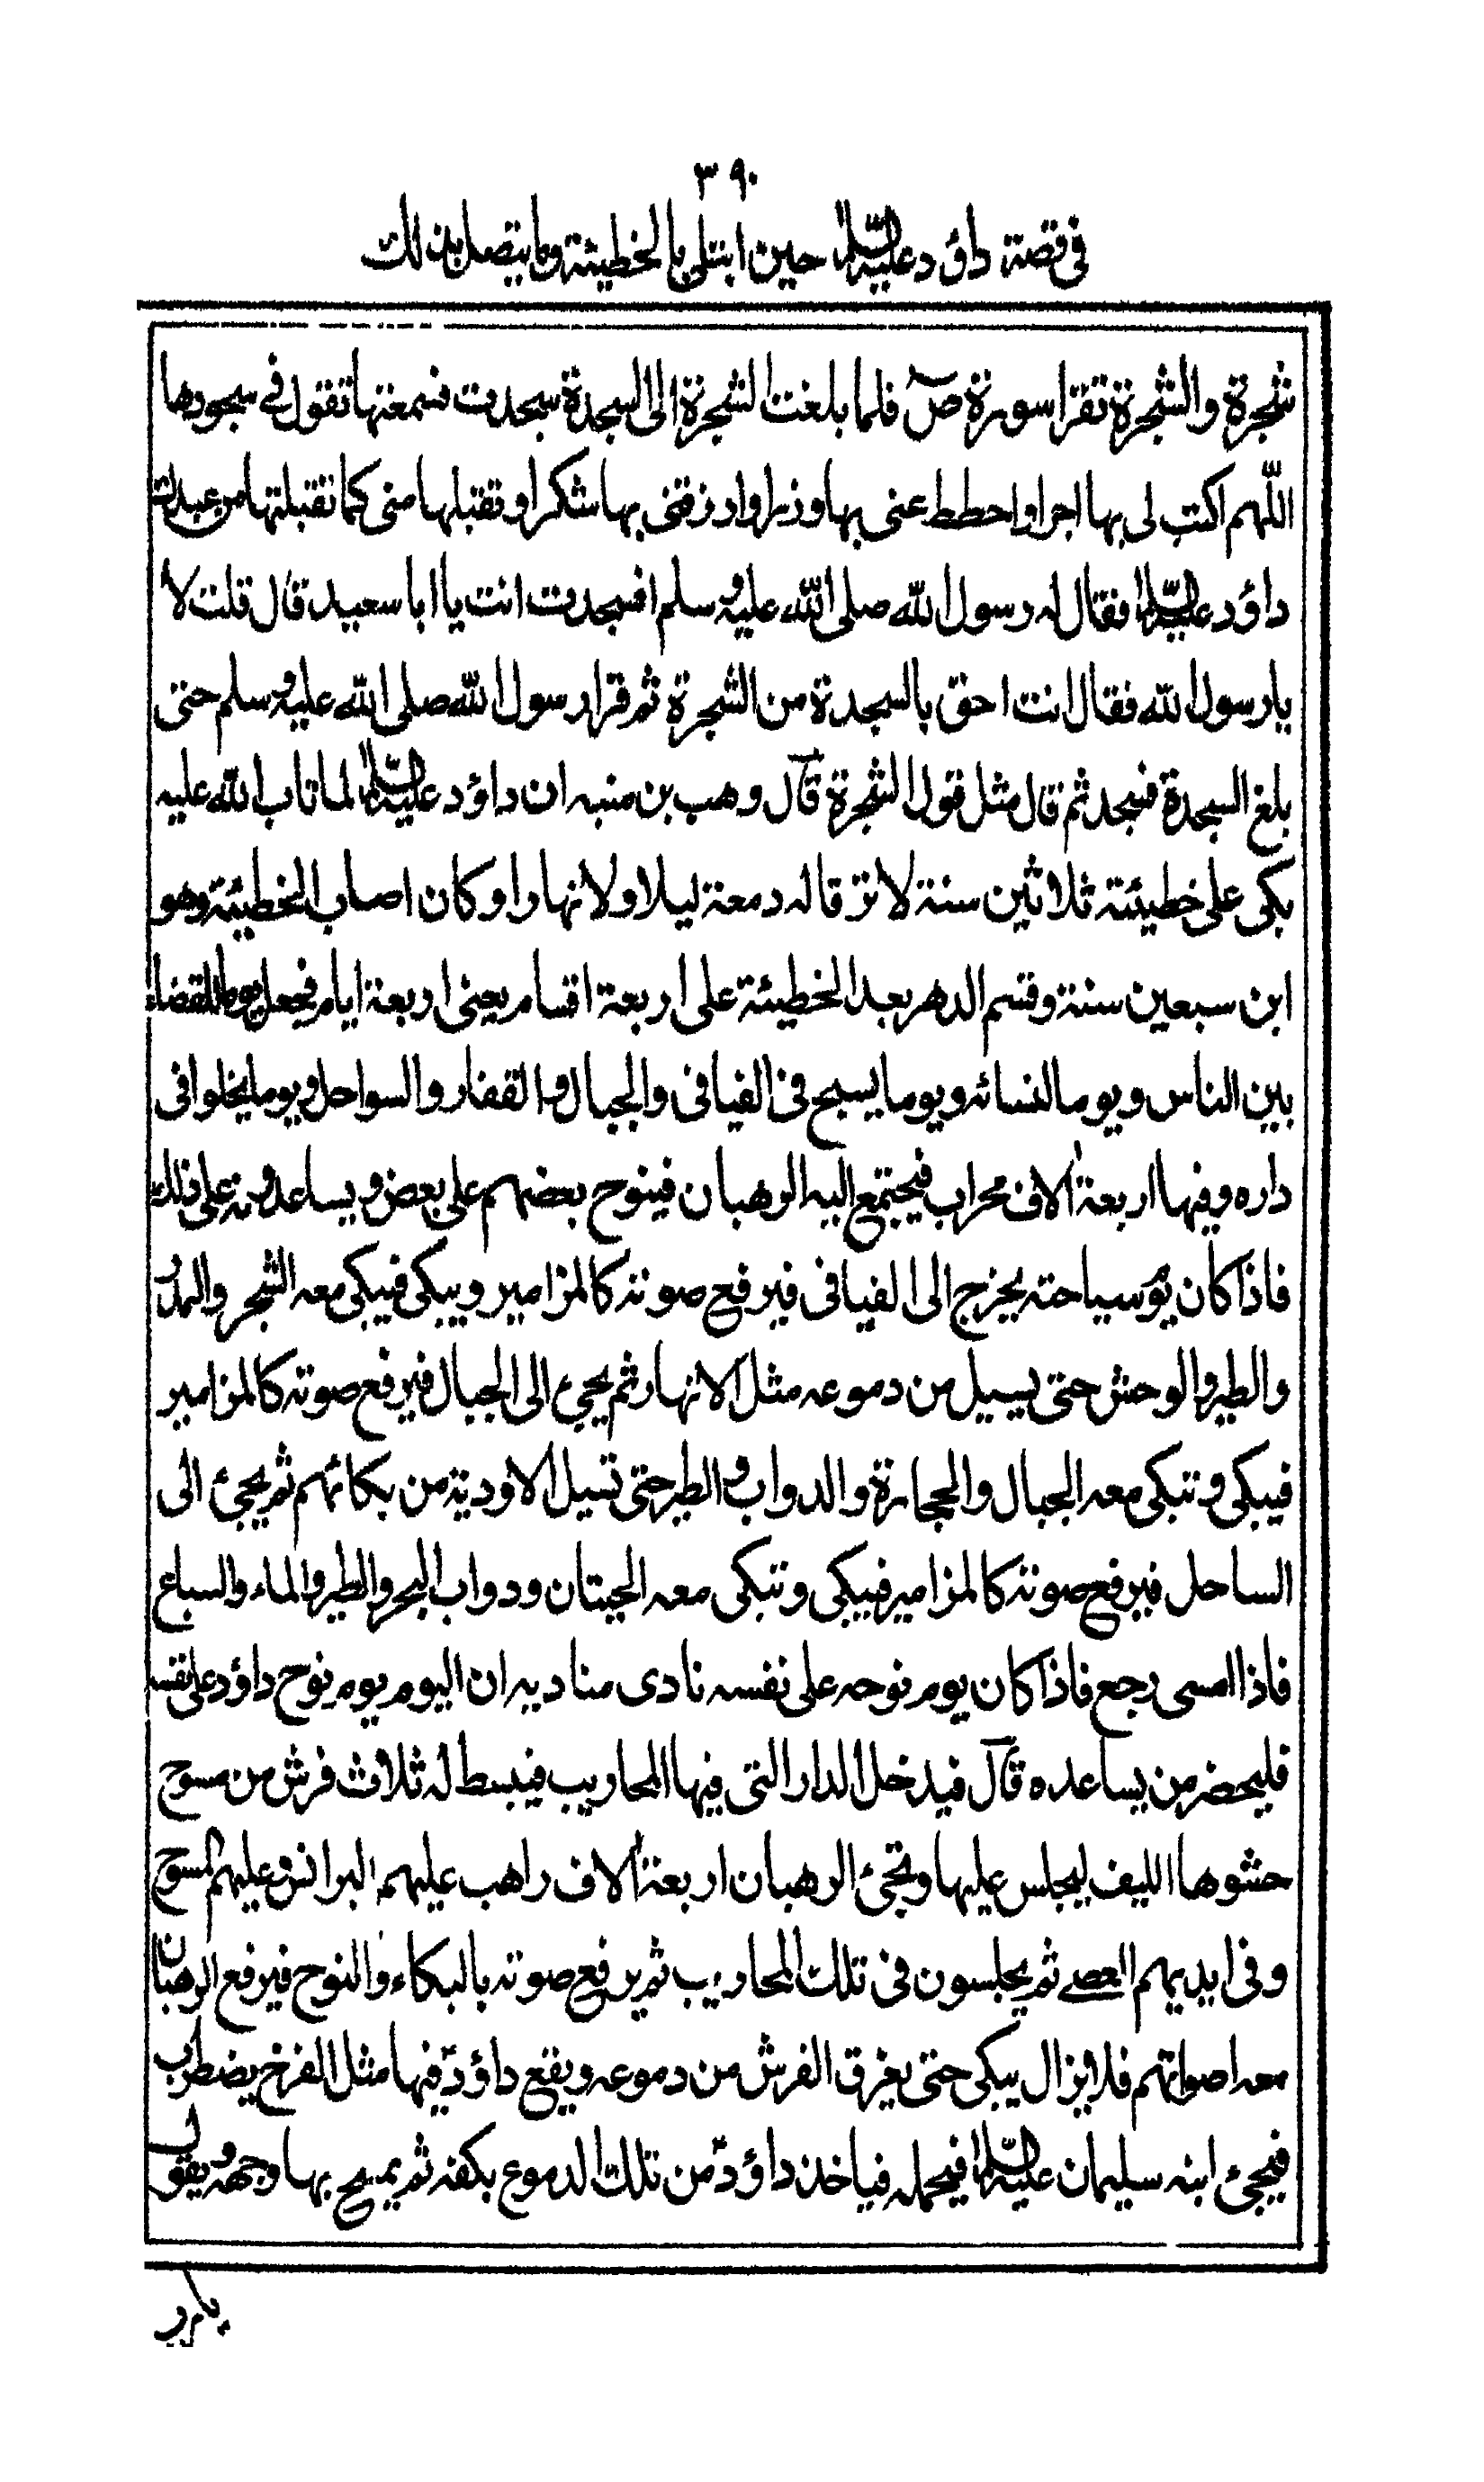 ٣٩٠
في قصة داؤد عليه السلام حين ابتلى بالخطيئة وما يتصل بذلك
شجرة والشجرة تقرا سورة صٓ فلما بلغت الشجرة الى السجدة سجدت فسمعتها تقول في سجودها
اللّهم اكتب لى بها اجرا واحطط عنى بها وزرا وارزقنى بها شكرا وتقبلها منى كما تقبلتها من عبدك
داؤد عليه السلام فقال له رسول الله صلى الله عليه وسلم افسجدت انت يا ابا سعيد قال قلت لا
يا رسول الله فقال انت احق بالسجدة من الشجرة ثم قرا رسول الله صلى الله عليه وسلم حتى
بلغ السجدة فسجد ثم قال مثل قول الشجرة قال وهب بن منبه ان داؤد عليه السلام لما تاب الله عليه
بكى على خطيئته ثلاثين سنة لا ترقا له دمعة ليلا ولا نهارا وكان اصاب الخطيئة وهو
ابن سبعين سنة وقسم الدهر بعد الخطيئة على اربعة اقسام يعنى اربعة ايام فجعل يوما للقضاء
بين الناس ويوما لنسائه ويوما يسبح فى الفيافى والجبال والقفار والسواحل ويوما يخلوا فى
داره وفيها اربعة الاف محراب فيجتمع اليه الرهبان فينوح بعضهم على بعض ويساعدونه على ذلك
فاذا كان يوم سياحته يخرج الى الفيافى فيرفع صوته كالمزامير ويبكى فيبكى معه الشجر والمدر
والطير والوحش حتى يسيل من دموعه مثل الانهار ثم يجيء الى الجبال فيرفع صوته كالمزامير
فيبكى وتبكى معه الجبال والحجارة والدواب والطير حتى تسيل الاودية من بكائهم ثم يجيئ الى
الساحل فيرفع صوته كالمزامير فيبكى وتبكى معه الحيتان ودواب البحر والطير والماء والسباع
فاذا امسى رجع فاذا كان يوم نوحه على نفسه نادى مناديه ان اليوم يوم نوح داؤد على نفسه
فليحضر من يساعده قال فيدخل الدار التى فيها المحاريب فيبسط له ثلاث فرش من مسوح
حشوها الليف ليجلس عليها ويجئ الرهبان اربعة الاف راهب عليهم البرانس وعليهم المسوح
وفى ايديهم العصے ثم يجلسون فى تلك المحاريب ثم يرفع صوته بالبكاء والنوح فيرفع الرهبان
معه اصواتهم فلا يزال يبكى حتى يغرق الفرش من دموعه ويقع داؤد فيها مثل الفرخ يضطرب
فيجئ ابنه سليمان عليه السلام فيحمله فياخذ داؤد من تلك الدموع بكفه ثم يمسح بها وجهه ويقول
يا رب